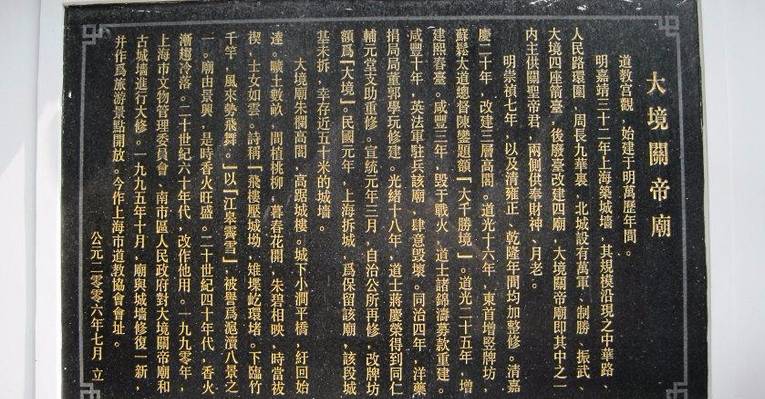 大境關帝廟
道教宫觀，始建于明萬歷年間。
明嘉靖三十二年上海築城墻，其規模沿現之中華路、
人民路環圍，周長九華裏，北城設有萬軍、制勝、振武、
大境四座箭臺，後廢臺改建四廟，大境關帝廟即其中之一
内主供關聖帝君，兩側供奉財神、月老。
明崇禎七年，以及清雍正、乾隆年間均加整修。清嘉
慶二十年，改建三層高閣。道光十六年，東首增竪牌坊，
蘇鬆太道總督陳鑾題額「大千勝境」。道光二十五年，增
建熙春臺。咸豐三年，毀于戰火，道士諸錦濤募款重建。
咸豐十年，英法軍駐兵該廟，肆意毀壞。同治四年，洋藥
捐局局董郭學玩修建。光緒十八年，道士蔣慶榮得到同仁
輔元堂支助重修。宣統元年三月，自治公所再修，改牌坊
額爲「大境」。民國元年，上海拆城，爲保留該廟，該段城
基未拆，幸存近五十米的城墻。
大境廟朱欄高閣，高踞城樓。城下小澗平橋，紆回始
達。曠土數畝，間植桃柳，暮春花開，朱碧相映，時當袚
禊，士女如雲。詩稱「飛樓壓城坳，雉堞屹環堵。下臨竹
千竿，風來勢飛舞。」以「江皋霽雪」，被譽爲滬瀆八景之
一。廟由景興，是時香火旺盛。二十世紀四十年代，香火
漸趨冷落。二十世紀六十年代，改作他用。一九九零年，
上海市文物管理委員會、南市區人民政府對大境關帝廟和
古城墻進行大修。一九九五年十月，廟與城墻修復一新，
并作爲旅游景點開放。今作上海市道教協會會址。
公元二零零六年七月 立